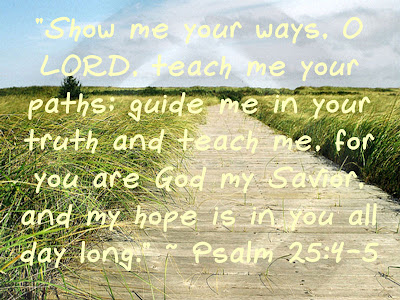 "Show me your ways, O
LORD, teach me your
paths; guide me in your
truth and teach me, for
you are God my Savior,
and my hope is in you all
day long." ~ Psalm 25:4-5